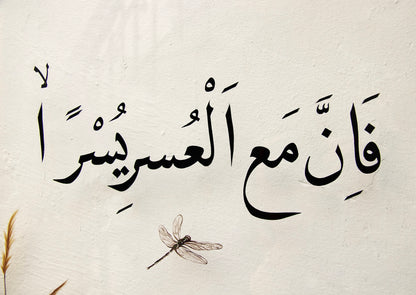 فَاِنَّ مَع اَلْعُسرِيُسْرًا